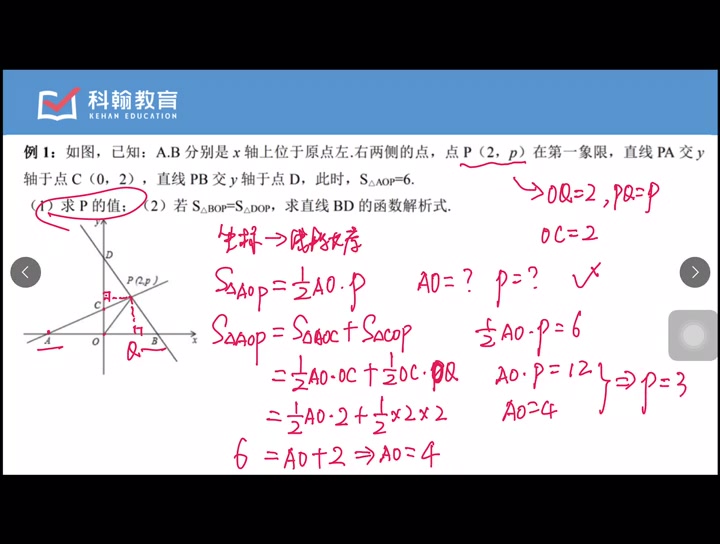 科翰教育
KEHAN EDUCATION
例 1：如图，已知：A.B 分别是 x 轴上位于原点左.右两侧的点，点 P（2，p）在第一象限，直线 PA 交 y
轴于点 C（0，2），直线 PB 交 y 轴于点 D，此时，S△AOP=6.
（1）求 P 的值；（2）若 S△BOP=S△DOP，求直线 BD 的函数解析式.
→OQ=2，PQ=P
OC=2
坐标→线段长度
S△AOP=½AO·P AO=? P=?
S△AOP=S△AOC+S△COP
=½AO·OC+½OC·OQ
=½AO·2+½×2×2
6=AO+2⇒AO=4
½AO·P=6
AO·P=12
AO=4
⇒P=3
y
D
P (2,p)
C
A
O
Q
B
x